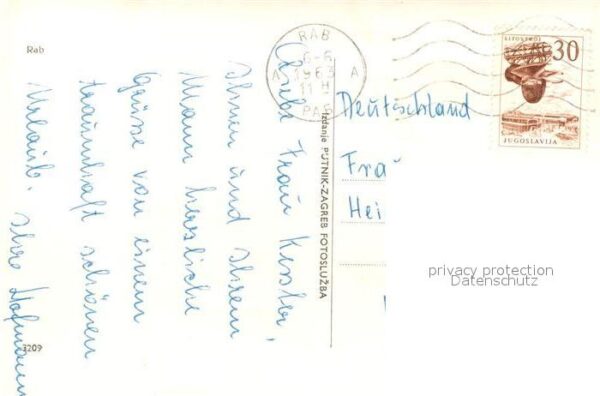 Rab
Liebe Frau Kessler,
Ihnen und Ihrem
Mann herzliche
Grüsse von einem
traumhaft schönen
Urlaub.
Ihre Hofmann
3209
Izdanje PUTNIK-ZAGREB FOTOSLUŽBA
RAB
6-6
1963
11 H
A A
РАБ
LITOSTROJ
30
JUGOSLAVIJA
Deutschland
Fra
Hei
privacy protection
Datenschutz